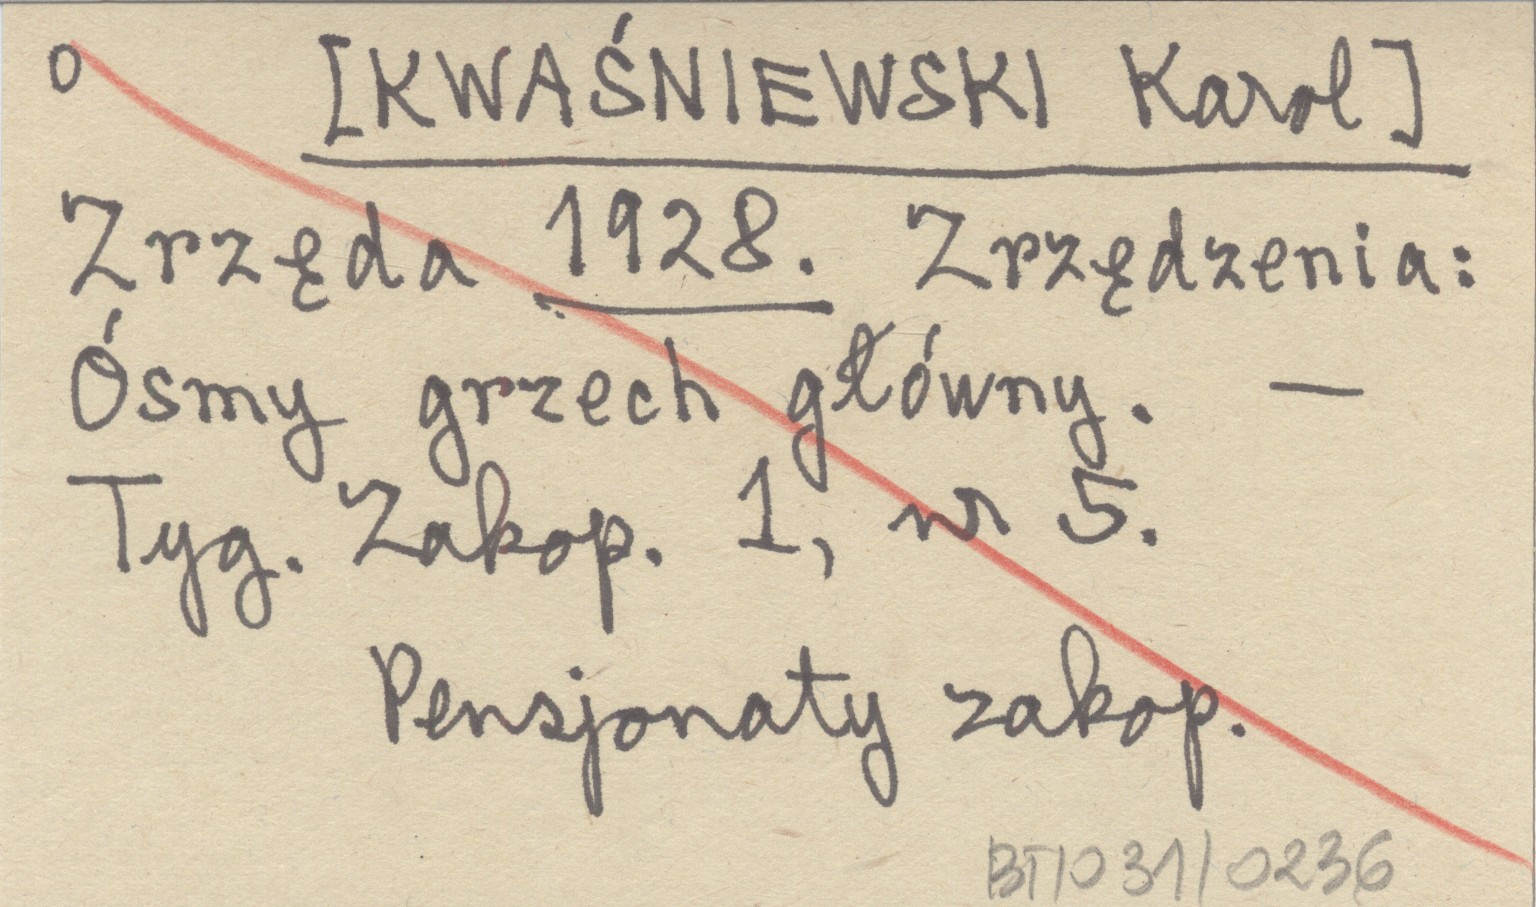 o [KWAŚNIEWSKI Karol]
Zrzęda 1928. Zrzędzenia:
Ósmy grzech główny. —
Tyg. Zakop. 1, nr 5.
Pensjonaty zakop.
BT/031/0236